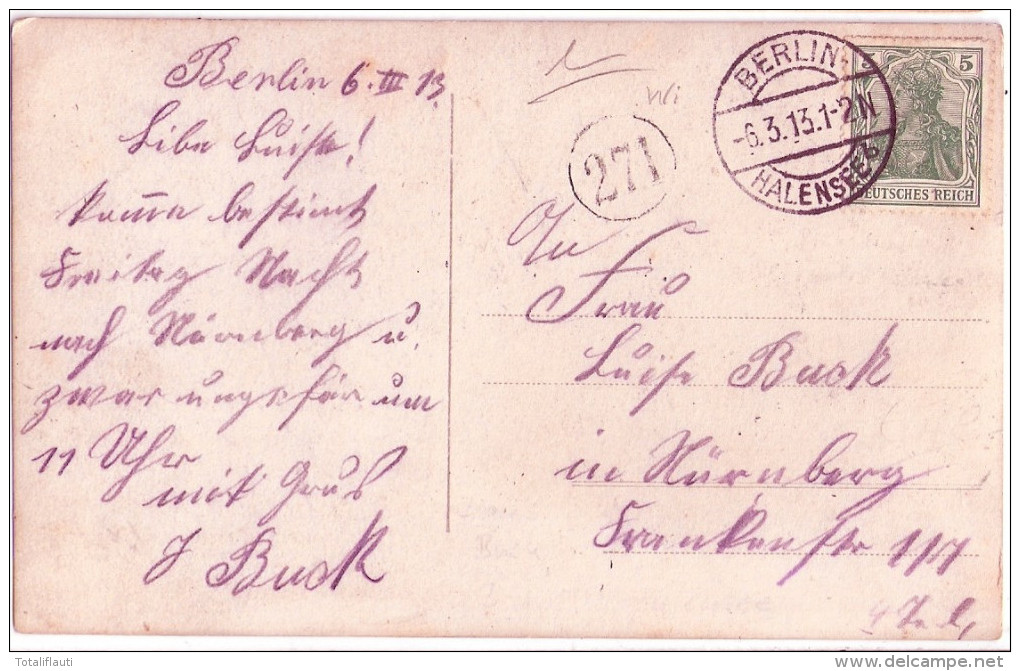 Berlin 6. III 13.
Libe Luise!
kome bestimt
Freitag Nacht
nach Nürnberg u.
zwar ungefär um
11 Uhr
mit Grus
J Buck
271
BERLIN-
-6.3.13.1-2N
HALENSEE
5
DEUTSCHES REICH
An
Frau
Luise Buck
in Nürnberg
Frankenstr
Totaliflauti
www.delcampe.net